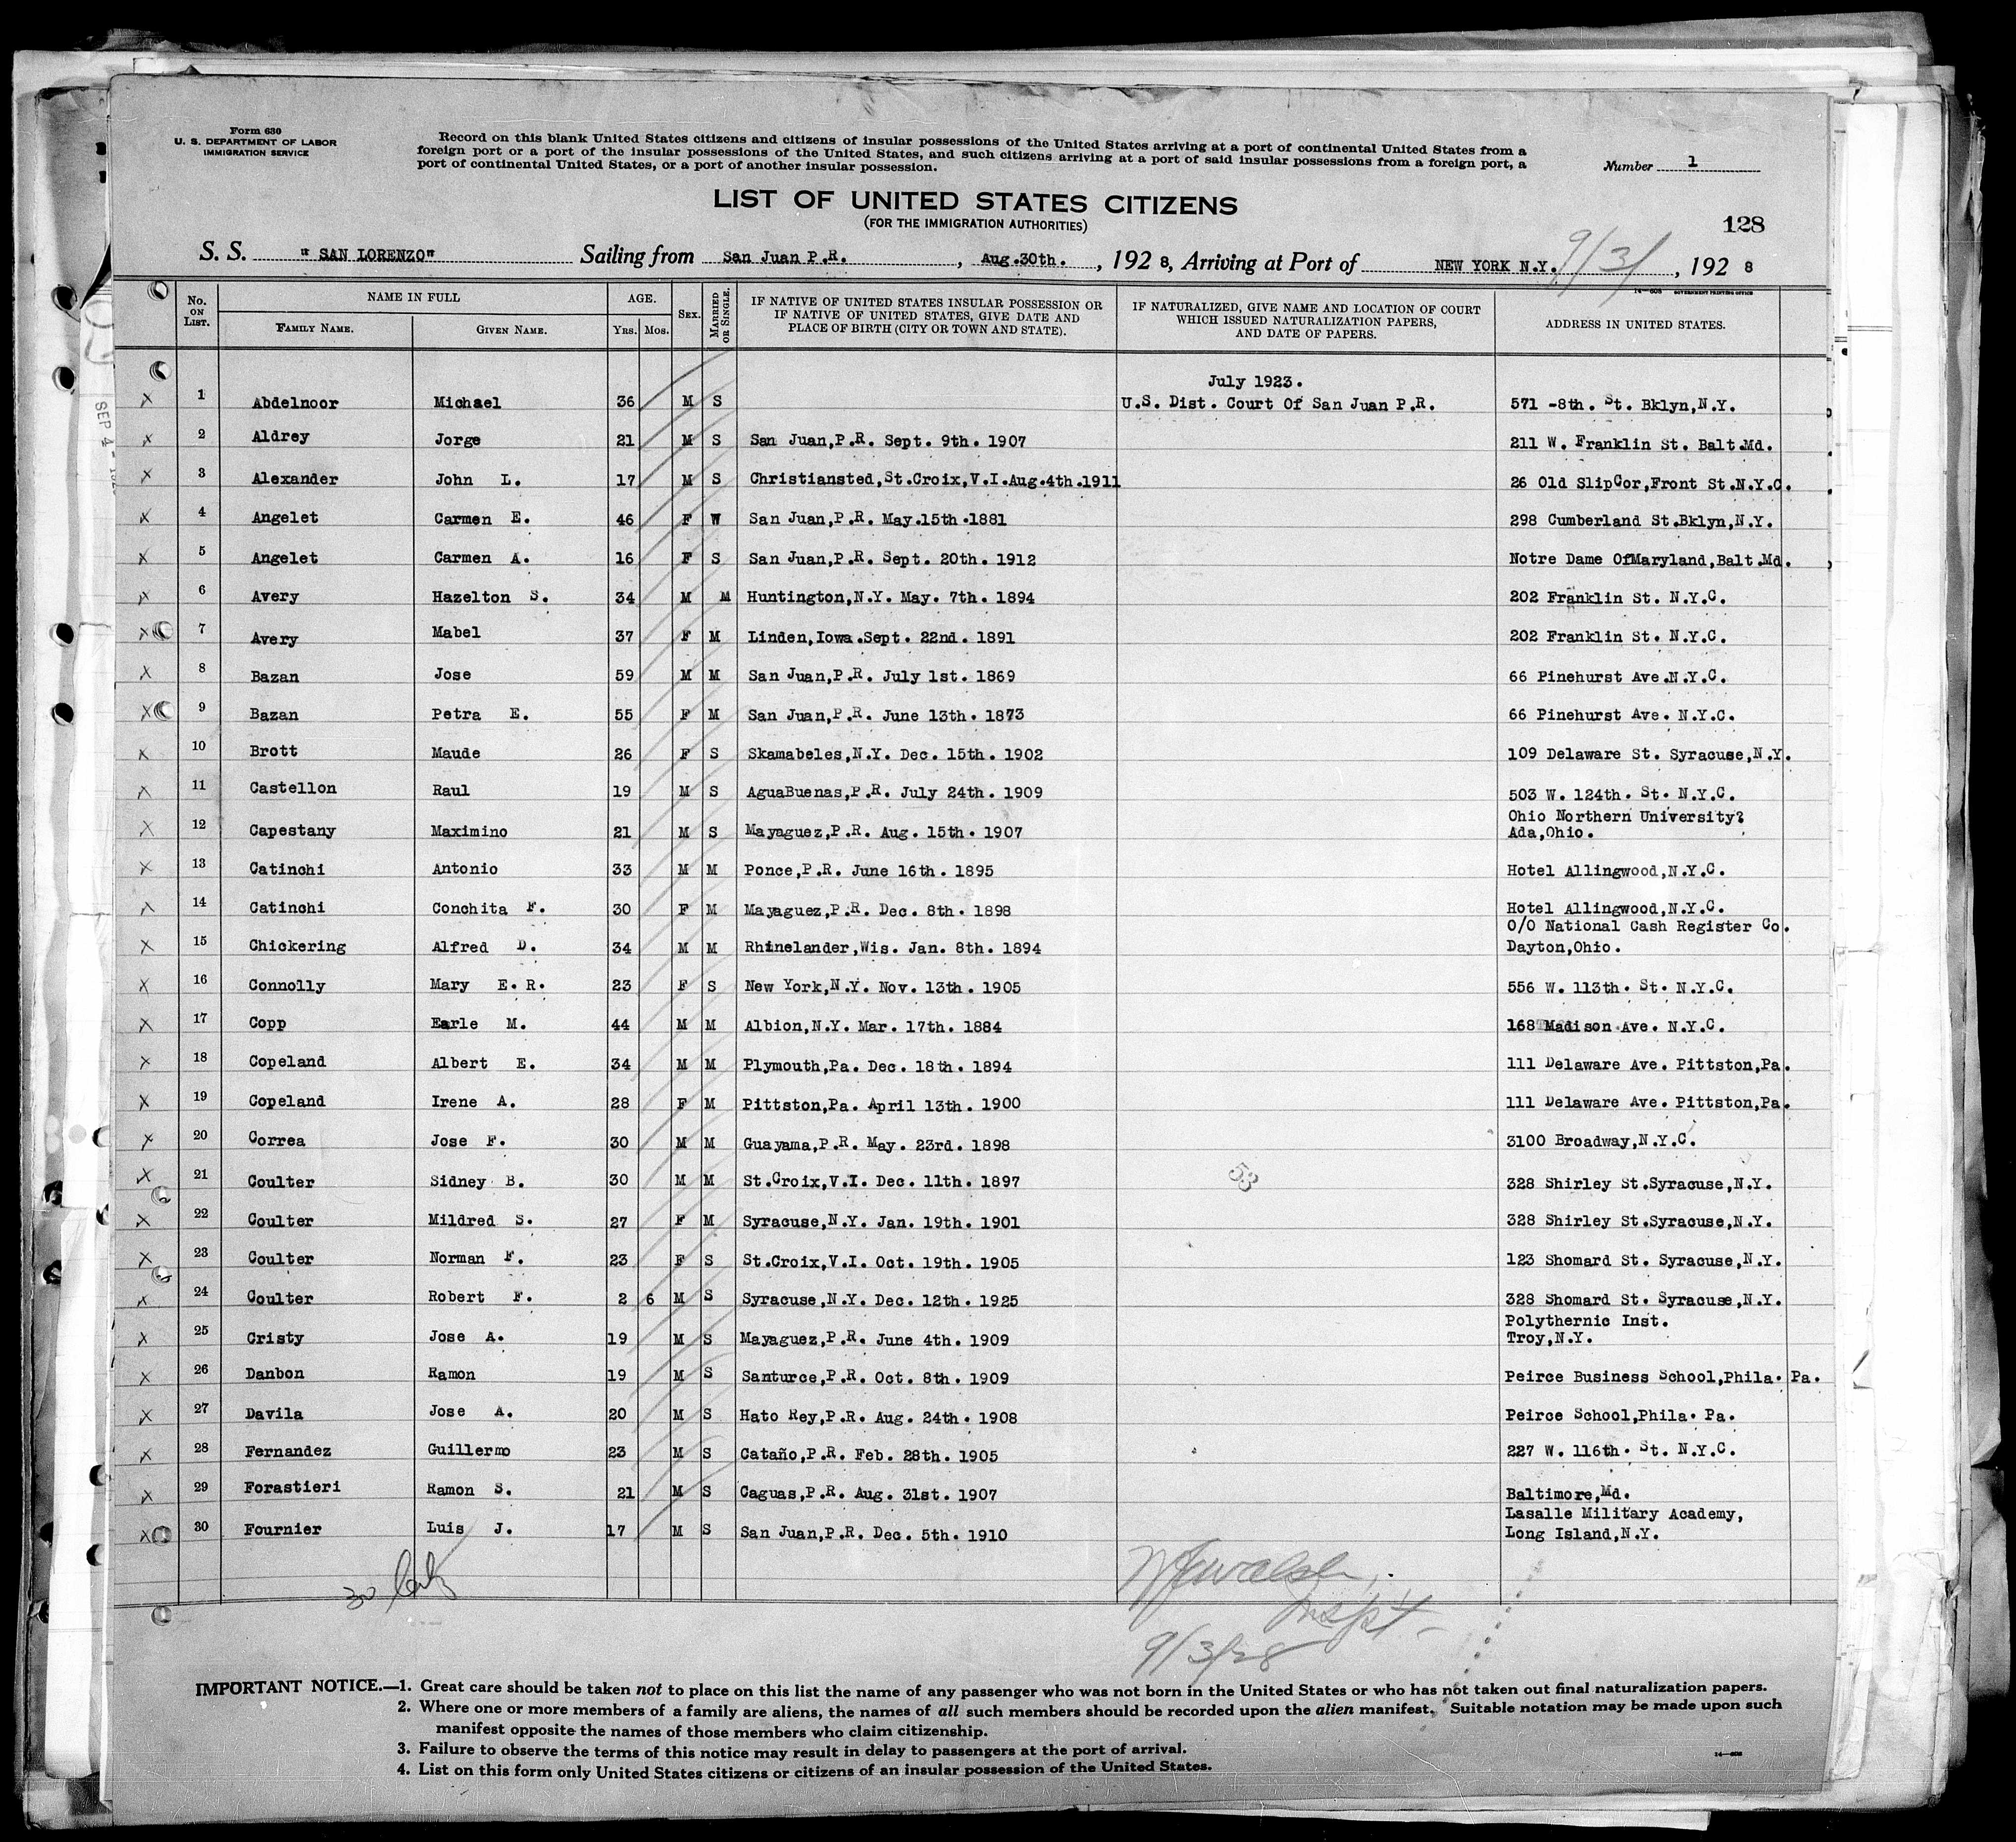 Form 630
U. S. DEPARTMENT OF LABOR
IMMIGRATION SERVICE
Record on this blank United States citizens and citizens of insular possessions of the United States arriving at a port of continental United States from a
foreign port or a port of the insular possessions of the United States, and such citizens arriving at a port of said insular possessions from a foreign port, a
port of continental United States, or a port of another insular possession.
Number 1
LIST OF UNITED STATES CITIZENS
(FOR THE IMMIGRATION AUTHORITIES)
128
S. S. "SAN LORENZO" Sailing from San Juan P.R. , Aug.30th. , 192 8, Arriving at Port of NEW YORK N.Y. 9/3/ , 192 8
14—608 GOVERNMENT PRINTING OFFICE
No. ON LIST. NAME IN FULL FAMILY NAME. GIVEN NAME. AGE. Yrs. Mos. SEX. MARRIED OR SINGLE. IF NATIVE OF UNITED STATES INSULAR POSSESSION OR IF NATIVE OF UNITED STATES, GIVE DATE AND PLACE OF BIRTH (CITY OR TOWN AND STATE). IF NATURALIZED, GIVE NAME AND LOCATION OF COURT WHICH ISSUED NATURALIZATION PAPERS, AND DATE OF PAPERS. ADDRESS IN UNITED STATES.
SEP 4
July 1923.
X 1 Abdelnoor Michael 36 M S U.S. Dist. Court Of San Juan P.R. 571 -8th. St. Bklyn,N.Y.
X 2 Aldrey Jorge 21 M S San Juan,P.R. Sept. 9th. 1907 211 W. Franklin St. Balt.Md.
X 3 Alexander John L. 17 M S Christiansted,St.Croix,V.I.Aug.4th.1911 26 Old SlipCor,Front St.N.Y.C.
X 4 Angelet Carmen E. 46 F W San Juan,P.R. May.15th.1881 298 Cumberland St.Bklyn,N.Y.
X 5 Angelet Carmen A. 16 F S San Juan,P.R. Sept. 20th. 1912 Notre Dame OfMaryland,Balt.Md.
X 6 Avery Hazelton S. 34 M M Huntington,N.Y. May. 7th. 1894 202 Franklin St. N.Y.C.
X 7 Avery Mabel 37 F M Linden,Iowa.Sept. 22nd. 1891 202 Franklin St. N.Y.C.
X 8 Bazan Jose 59 M M San Juan,P.R. July 1st. 1869 66 Pinehurst Ave.N.Y.C.
X 9 Bazan Petra E. 55 F M San Juan,P.R. June 13th. 1873 66 Pinehurst Ave. N.Y.C.
X 10 Brott Maude 26 F S Skamabeles,N.Y. Dec. 15th. 1902 109 Delaware St. Syracuse,N.Y.
X 11 Castellon Raul 19 M S AguaBuenas,P.R. July 24th. 1909 503 W. 124th. St. N.Y.C.
Ohio Northern University?
X 12 Capestany Maximino 21 M S Mayaguez,P.R. Aug. 15th. 1907 Ada,Ohio.
X 13 Catinchi Antonio 33 M M Ponce,P.R. June 16th. 1895 Hotel Allingwood,N.Y.C.
X 14 Catinchi Conchita F. 30 F M Mayaguez,P.R. Dec. 8th. 1898 Hotel Allingwood,N.Y.C.
0/0 National Cash Register Co.
X 15 Chickering Alfred D. 34 M M Rhinelander,Wis. Jan. 8th. 1894 Dayton,Ohio.
X 16 Connolly Mary E.R. 23 F S New York,N.Y. Nov. 13th. 1905 556 W. 113th. St. N.Y.C.
X 17 Copp Earle M. 44 M M Albion,N.Y. Mar. 17th. 1884 168 Madison Ave. N.Y.C.
X 18 Copeland Albert E. 34 M M Plymouth,Pa. Dec. 18th. 1894 111 Delaware Ave. Pittston,Pa.
X 19 Copeland Irene A. 28 F M Pittston,Pa. April 13th. 1900 111 Delaware Ave. Pittston,Pa.
X 20 Correa Jose F. 30 M M Guayama,P.R. May. 23rd. 1898 3100 Broadway,N.Y.C.
X 21 Coulter Sidney B. 30 M M St.Croix,V.I. Dec. 11th. 1897 53 328 Shirley St.Syracuse,N.Y.
X 22 Coulter Mildred S. 27 F M Syracuse,N.Y. Jan. 19th. 1901 328 Shirley St.Syracuse,N.Y.
X 23 Coulter Norman F. 23 F S St.Croix,V.I. Oct. 19th. 1905 123 Shomard St. Syracuse,N.Y.
X 24 Coulter Robert F. 2 6 M S Syracuse,N.Y. Dec. 12th. 1925 328 Shomard St. Syracuse,N.Y.
Polythernic Inst.
X 25 Cristy Jose A. 19 M S Mayaguez,P.R. June 4th. 1909 Troy,N.Y.
X 26 Danbon Ramon 19 M S Santurce,P.R. Oct. 8th. 1909 Peirce Business School,Phila. Pa.
X 27 Davila Jose A. 20 M S Hato Rey,P.R. Aug. 24th. 1908 Peirce School,Phila. Pa.
X 28 Fernandez Guillermo 23 M S Cataño,P.R. Feb. 28th. 1905 227 W. 116th. St. N.Y.C.
X 29 Forastieri Ramon S. 21 M S Caguas,P.R. Aug. 31st. 1907 Baltimore,Md.
Lasalle Military Academy,
X 30 Fournier Luis J. 17 M S San Juan,P.R. Dec. 5th. 1910 Long Island,N.Y.
30
Walsh
Inspt
9/3/28
IMPORTANT NOTICE.—1. Great care should be taken not to place on this list the name of any passenger who was not born in the United States or who has not taken out final naturalization papers.
2. Where one or more members of a family are aliens, the names of all such members should be recorded upon the alien manifest. Suitable notation may be made upon such
manifest opposite the names of those members who claim citizenship.
3. Failure to observe the terms of this notice may result in delay to passengers at the port of arrival.
4. List on this form only United States citizens or citizens of an insular possession of the United States.
14—608